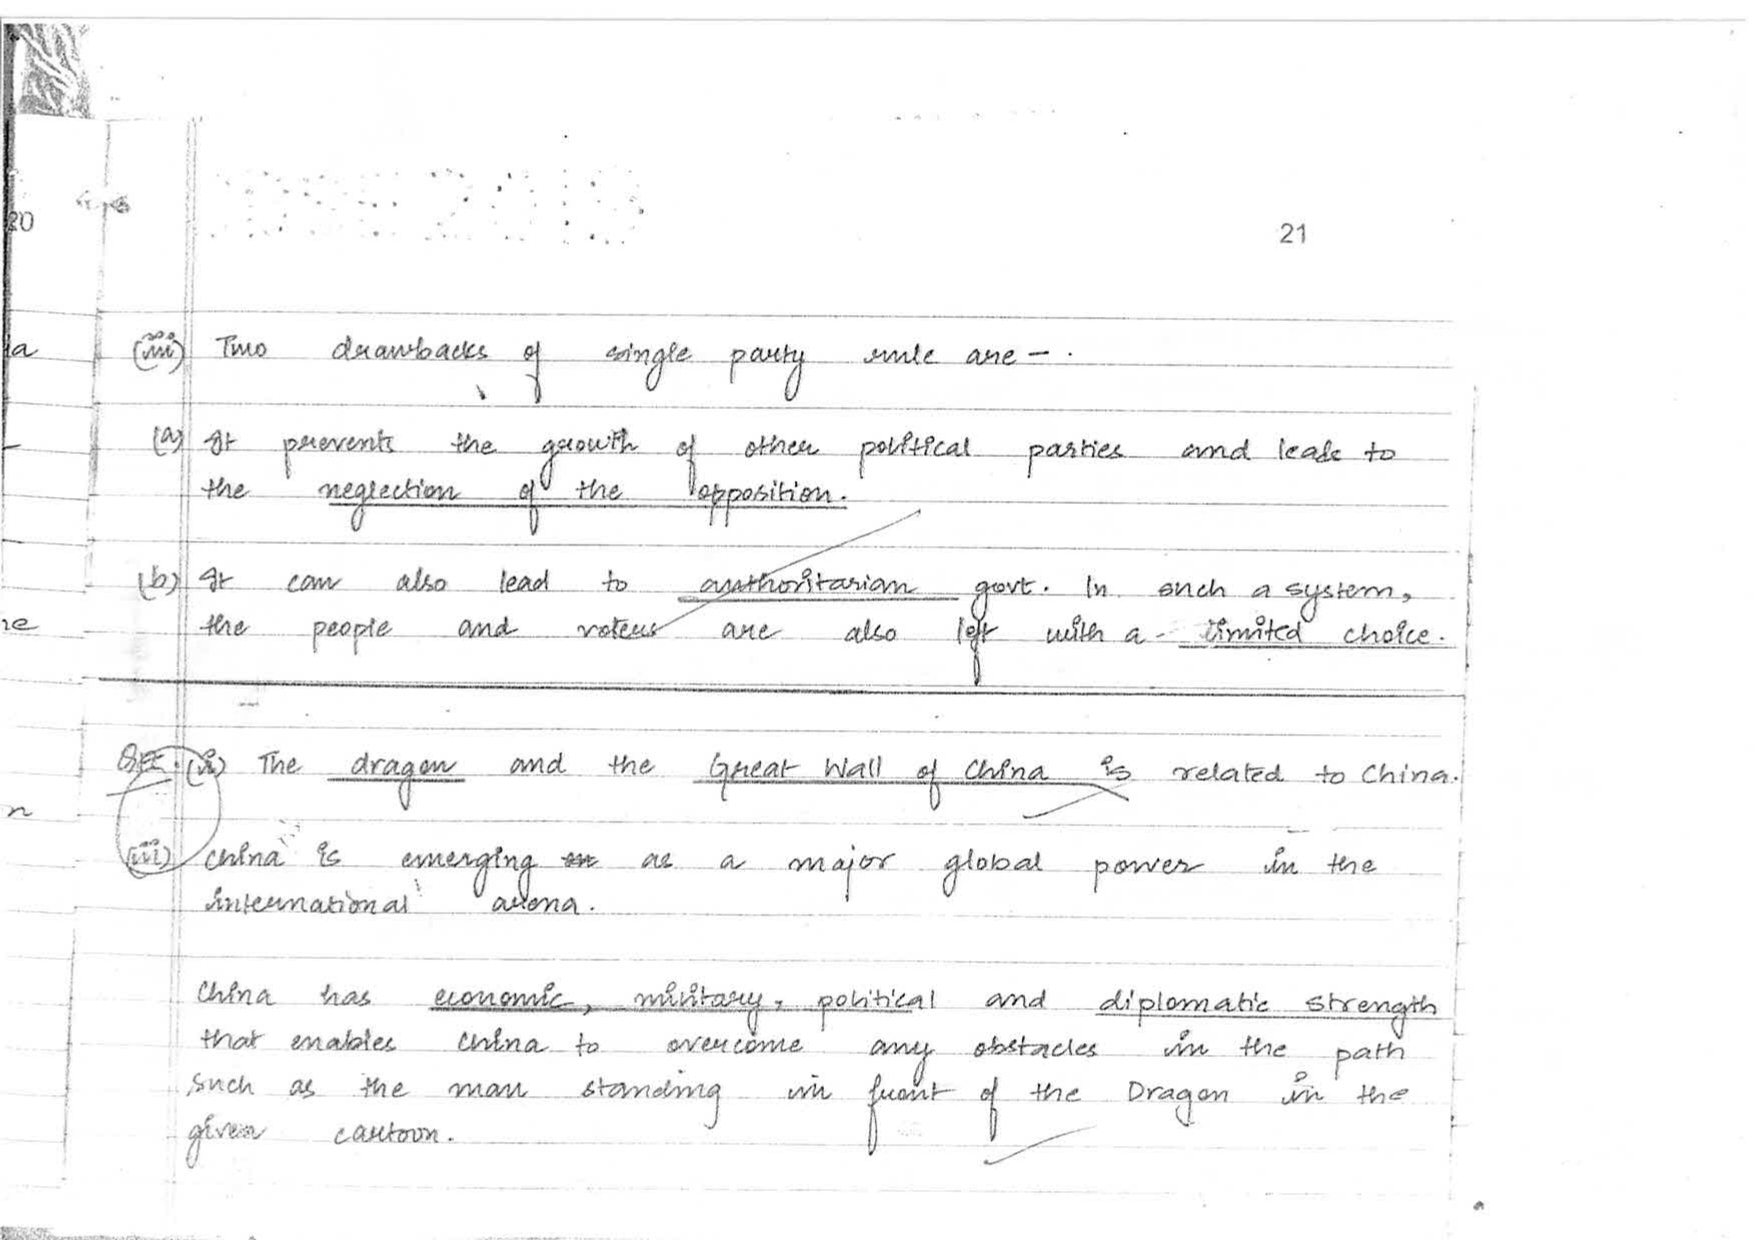 20
21
(iii) Two drawbacks of single party rule are - .
(a) It prevents the growth of other political parties and leads to
the neglection of the opposition.
(b) It can also lead to authoritarian govt. In such a system,
the people and voters are also left with a limited choice.
(i) The dragon and the Great Wall of China is related to China.
(ii) China is emerging as a major global power in the
international arena.
China has economic, military, political and diplomatic strength
that enables China to overcome any obstacles in the path
such as the man standing in front of the Dragon in the
given cartoon.